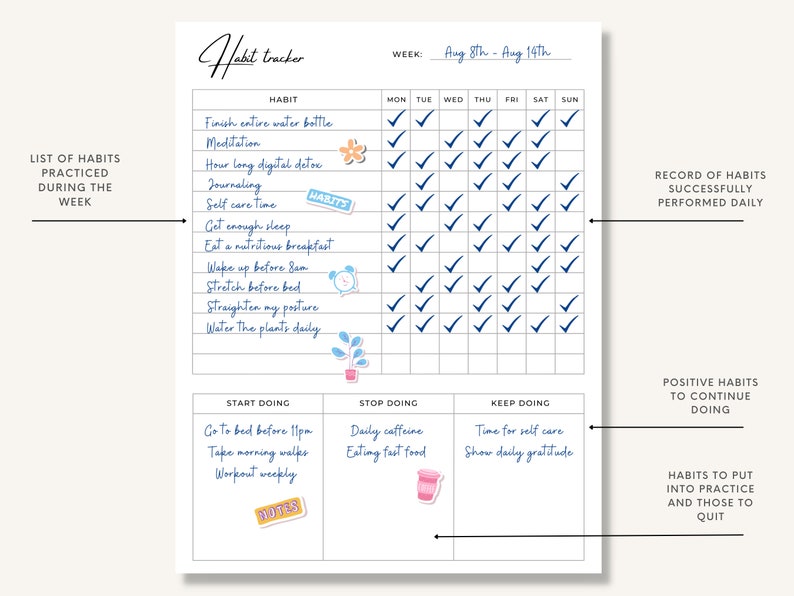 Habit tracker
WEEK: Aug 8th - Aug 14th
HABIT MON TUE WED THU FRI SAT SUN
Finish entire water bottle
Meditation
Hour long digital detox
Journaling
HABITS
Self care time
Get enough sleep
Eat a nutritious breakfast
Wake up before 8am
Stretch before bed
Straighten my posture
Water the plants daily
LIST OF HABITS
PRACTICED
DURING THE
WEEK
RECORD OF HABITS
SUCCESSFULLY
PERFORMED DAILY
START DOING STOP DOING KEEP DOING
Go to bed before 11pm
Take morning walks
Workout weekly
NOTES
Daily caffeine
Eatimg fast food
Time for self care
Show daily gratitude
POSITIVE HABITS
TO CONTINUE
DOING
HABITS TO PUT
INTO PRACTICE
AND THOSE TO
QUIT